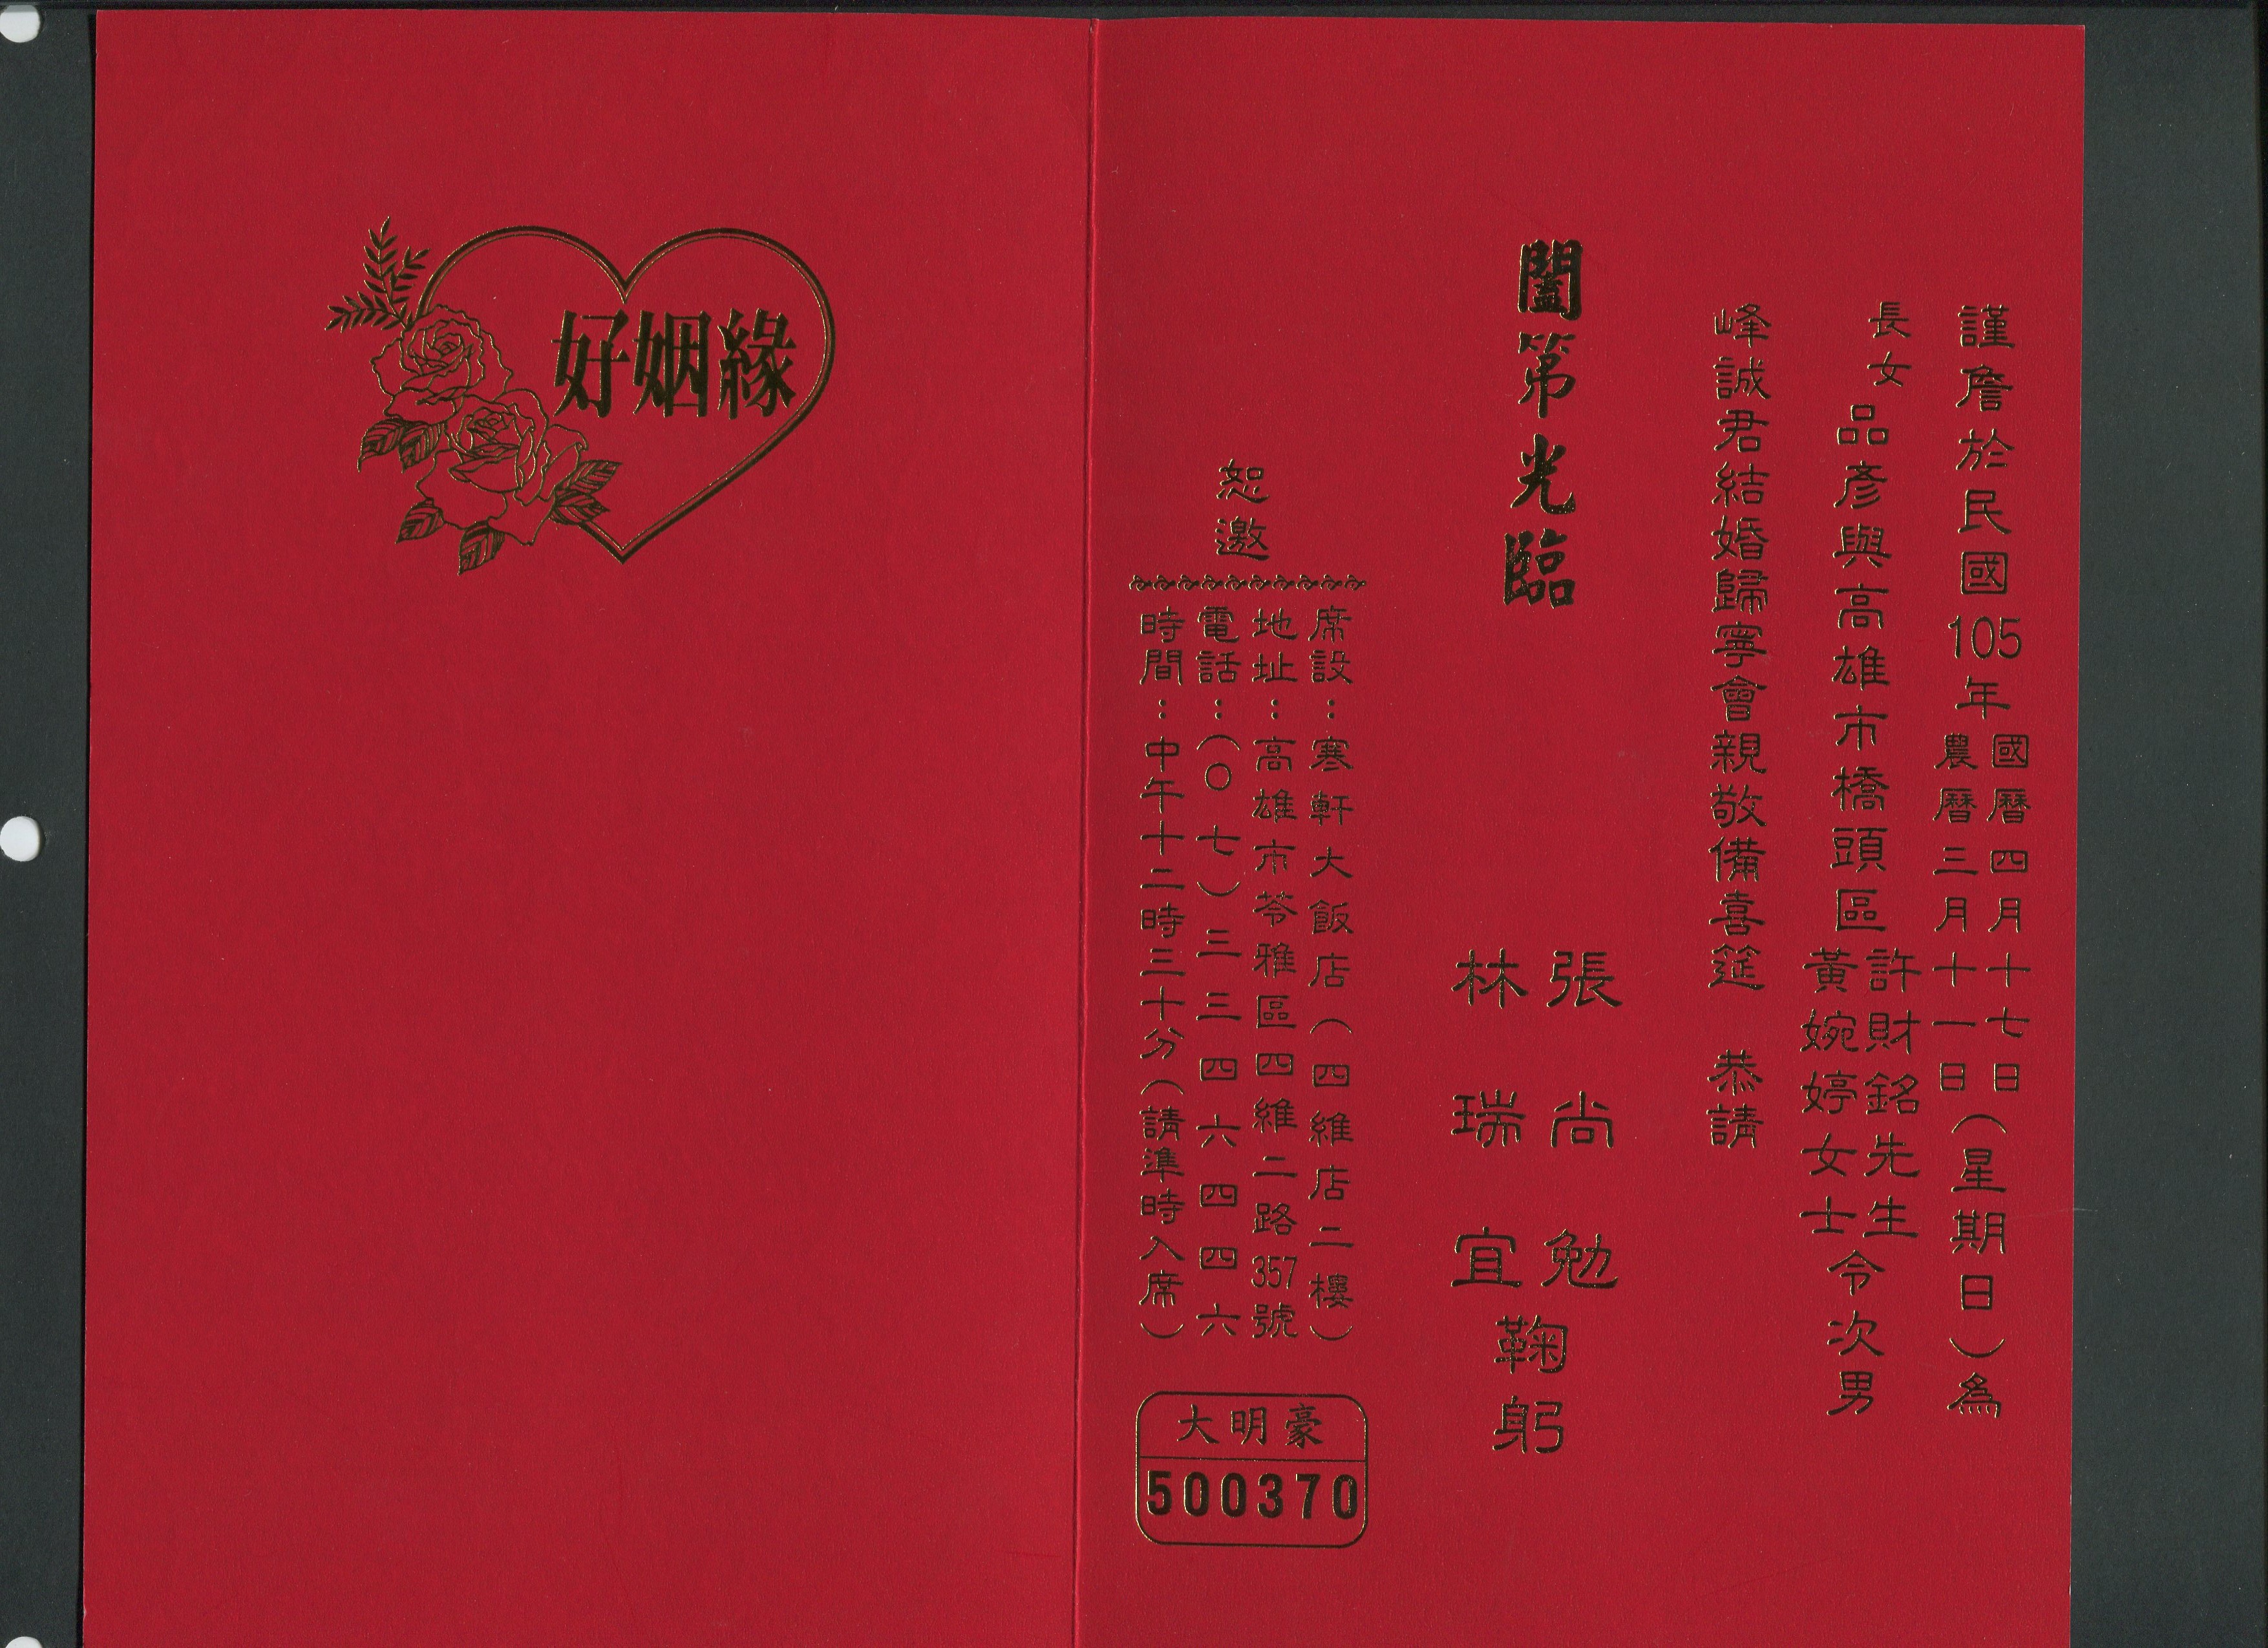 謹詹於民國105年國曆四月十七日農曆三月十一日(星期日)為
長女品彥與高雄市橋頭區許財銘先生黃婉婷女士令次男
峰誠君結婚歸寧會親敬備喜筵 恭請
闔第光臨
張尚勉
林瑞宜
鞠躬
恕邀
席設:寒軒大飯店(四維店二樓)
地址:高雄市苓雅區四維二路357號
電話:(〇七)三三四六四四六
時間:中午十二時三十分(請準時入席)
大明豪
500370
好姻緣